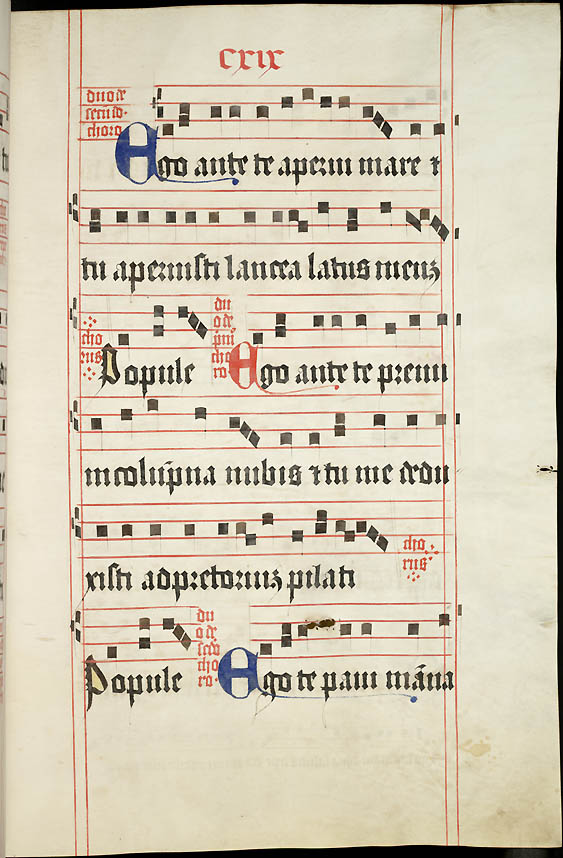 cxix
duo de
secūdo
choro
Ego ante te aperui mare ⁊
tu aperuisti lancea latus meuʒ
cho
rus
Popule
du
o de
p̄mi
cho
ro
Ego ante te preiui
in colup̄na nubis ⁊ tu me dedu
xisti ad pretoriuʒ pilati
cho
rus
Popule
du
o de
secō
cho
ro
Ego te paui māna